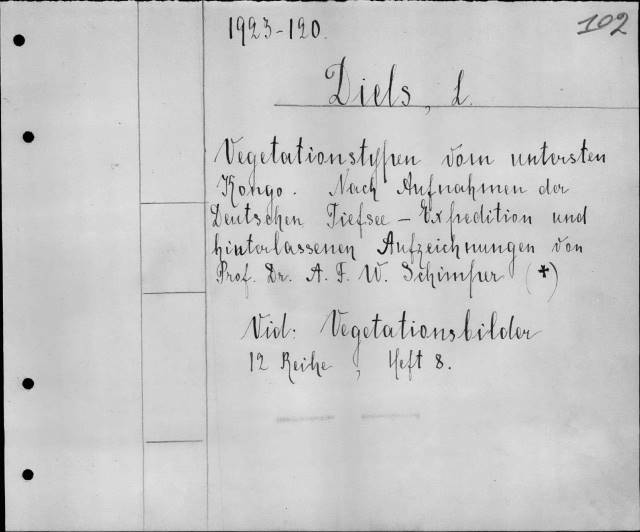 1923-120.
102
Diels, L.
Vegetationstypen vom untersten
Kongo. Nach Aufnahmen der
Deutschen Tiefsee - Expedition und
hinterlassenen Aufzeichnungen von
Prof. Dr. A. F. W. Schimper (+)
Vid: Vegetationsbilder
12 Reihe, Heft 8.